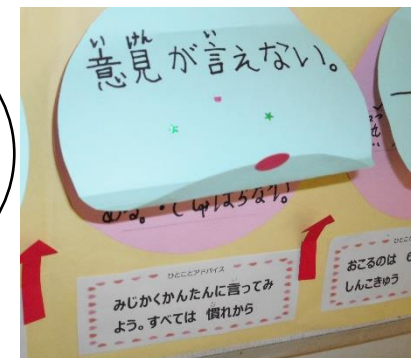 意見が言えない。
ひとことアドバイス
みじかくかんたんに言ってみ
よう。すべては 慣れから
おこるのは 6
しんこきゅう